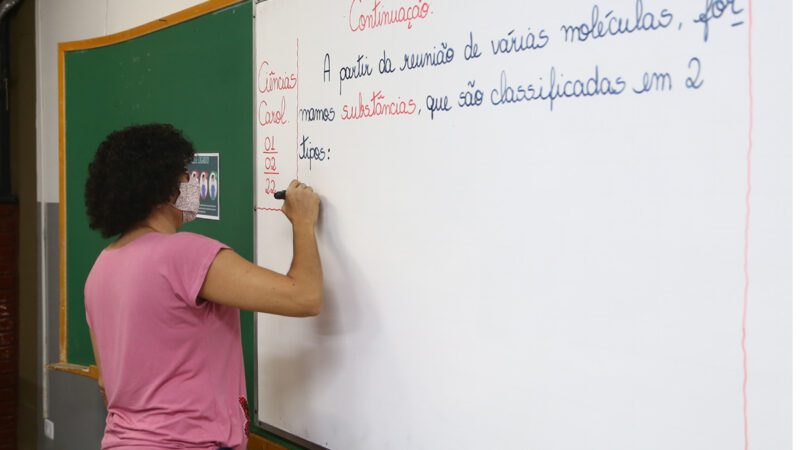 Continuação.
A partir da reunião de várias moléculas, for
mamos substâncias, que são classificadas em 2
tipos:
Ciências
Carol.
01
02
22